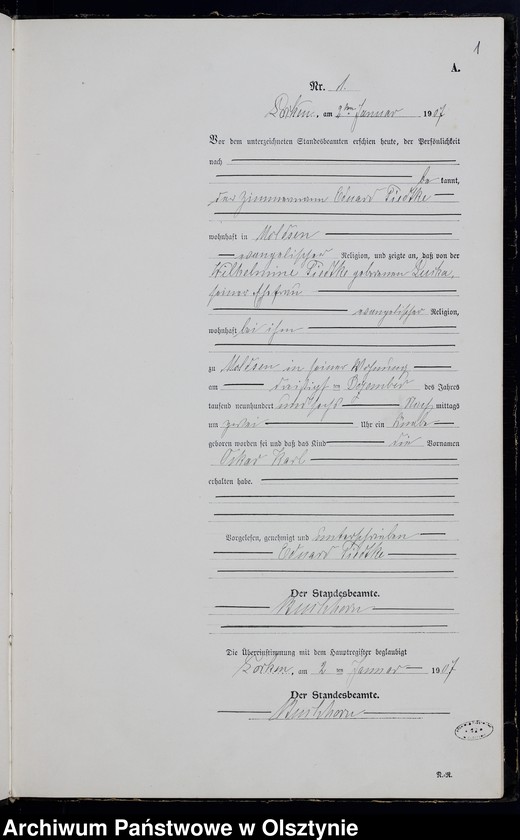 1
A.
Nr. 1.
am 2ten Januar 1907
Vor dem unterzeichneten Standesbeamten erschien heute, der Persönlichkeit
nach
be kannt,
der Zimmermann Eduard Tiedtke
wohnhaft in Moldsen
evangelischer Religion, und zeigte an, daß von der
Wilhelmine Tiedtke geborenen
seiner Ehefrau
evangelischer Religion,
wohnhaft bei ihm
zu Moldsen in seiner Wohnung
am dreißigsten Dezember des Jahres
tausend neunhundert und sechs Nachmittags
um zwei Uhr ein Knabe
geboren worden sei und daß das Kind die Vornamen
Oskar Karl
erhalten habe.
Vorgelesen, genehmigt und unterschrieben
Eduard Tiedtke
Der Standesbeamte.
Die Übereinstimmung mit dem Hauptregister beglaubigt
am 2 ten Januar 1907
Der Standesbeamte.
N./N.
Archiwum Państwowe w Olsztynie